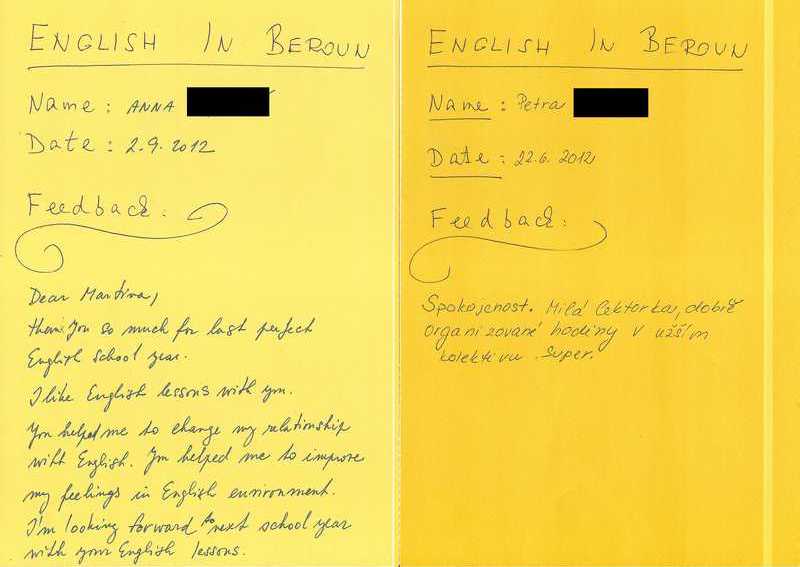 ENGLISH IN BEROUN
Name: ANNA
Date: 2.9.2012
Feedback:
Dear Martina,
thank you so much for last perfect
English school year.
I like English lessons with you.
You helped me to change my relationship
with English. You helped me to improve
my feelings in English environment.
I'm looking forward to next school year
with your English lessons.
ENGLISH IN BEROUN
Name: Petra
Date: 22.6. 2012
Feedback:
Spokojenost. Milá lektorka, dobře
organizované hodiny v užším
kolektivu. Super.